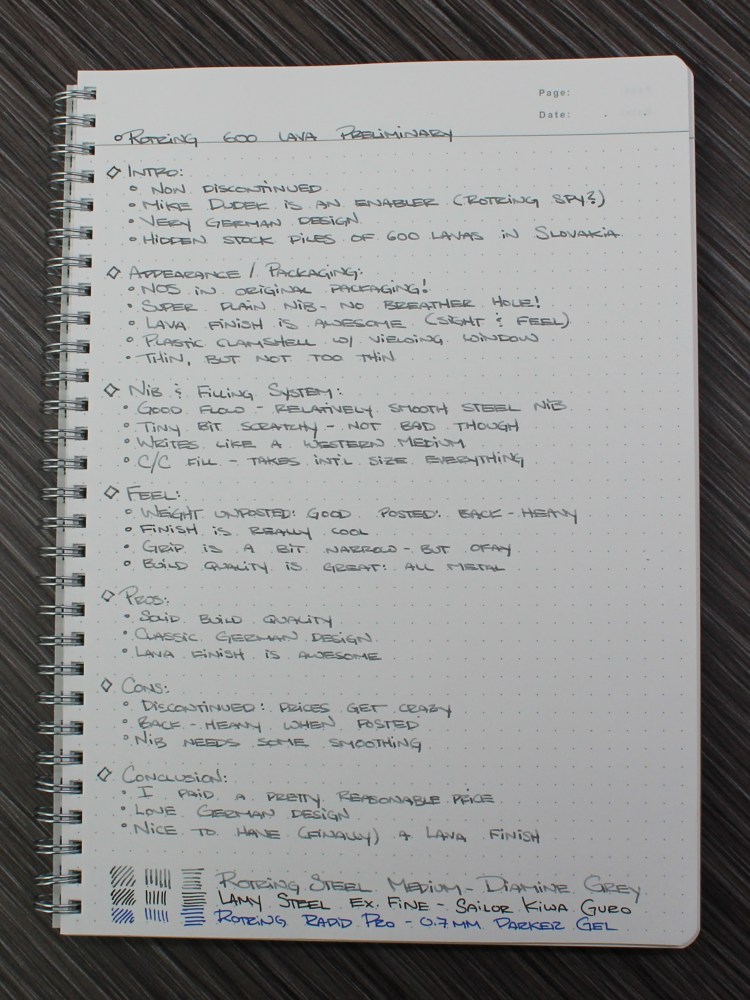 Page:
Date: . .
Rotring 600 Lava Preliminary
Intro:
Now Discontinued
Mike Dudek is an enabler (Rotring Spy?)
Very German Design
Hidden stock piles of 600 Lavas in Slovakia
Appearance / Packaging:
NOS in original packaging!
Super plain nib - no breather hole!
Lava finish is awesome (sight & feel)
Plastic clamshell w/ viewing window
Thin, but not too thin
Nib & Filling System:
Good flow - relatively smooth steel nib
Tiny bit scratchy - not bad though
Writes like a western medium
C/C fill - takes int'l size everything
Feel:
Weight unposted: good posted: back-heavy
Finish is really cool
Grip is a bit narrow - but okay
Build quality is great: all metal
Pros:
Solid build quality
Classic German design
Lava finish is awesome
Cons:
Discontinued: prices get crazy
Back-heavy when posted
Nib needs some smoothing
Conclusion:
I paid a pretty reasonable price
Love German design
Nice to have (finally) a lava finish
Rotring Steel Medium - Diamine Grey
Lamy Steel Ex. Fine - Sailor Kiwa Guro
Rotring Rapid Pro - 0.7mm Parker Gel